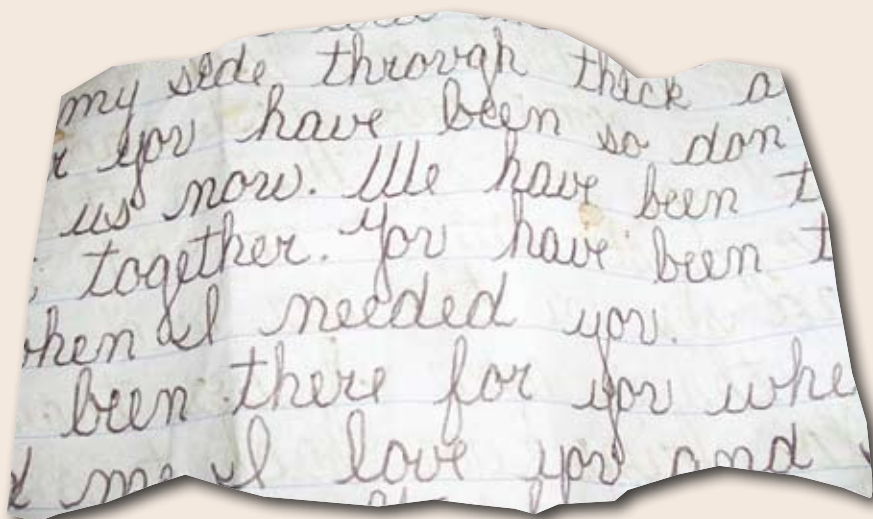 my side through thick a
you have been so don
us now. We have been t
together. You have been t
when I needed you.
been there for you whe
me I love you and